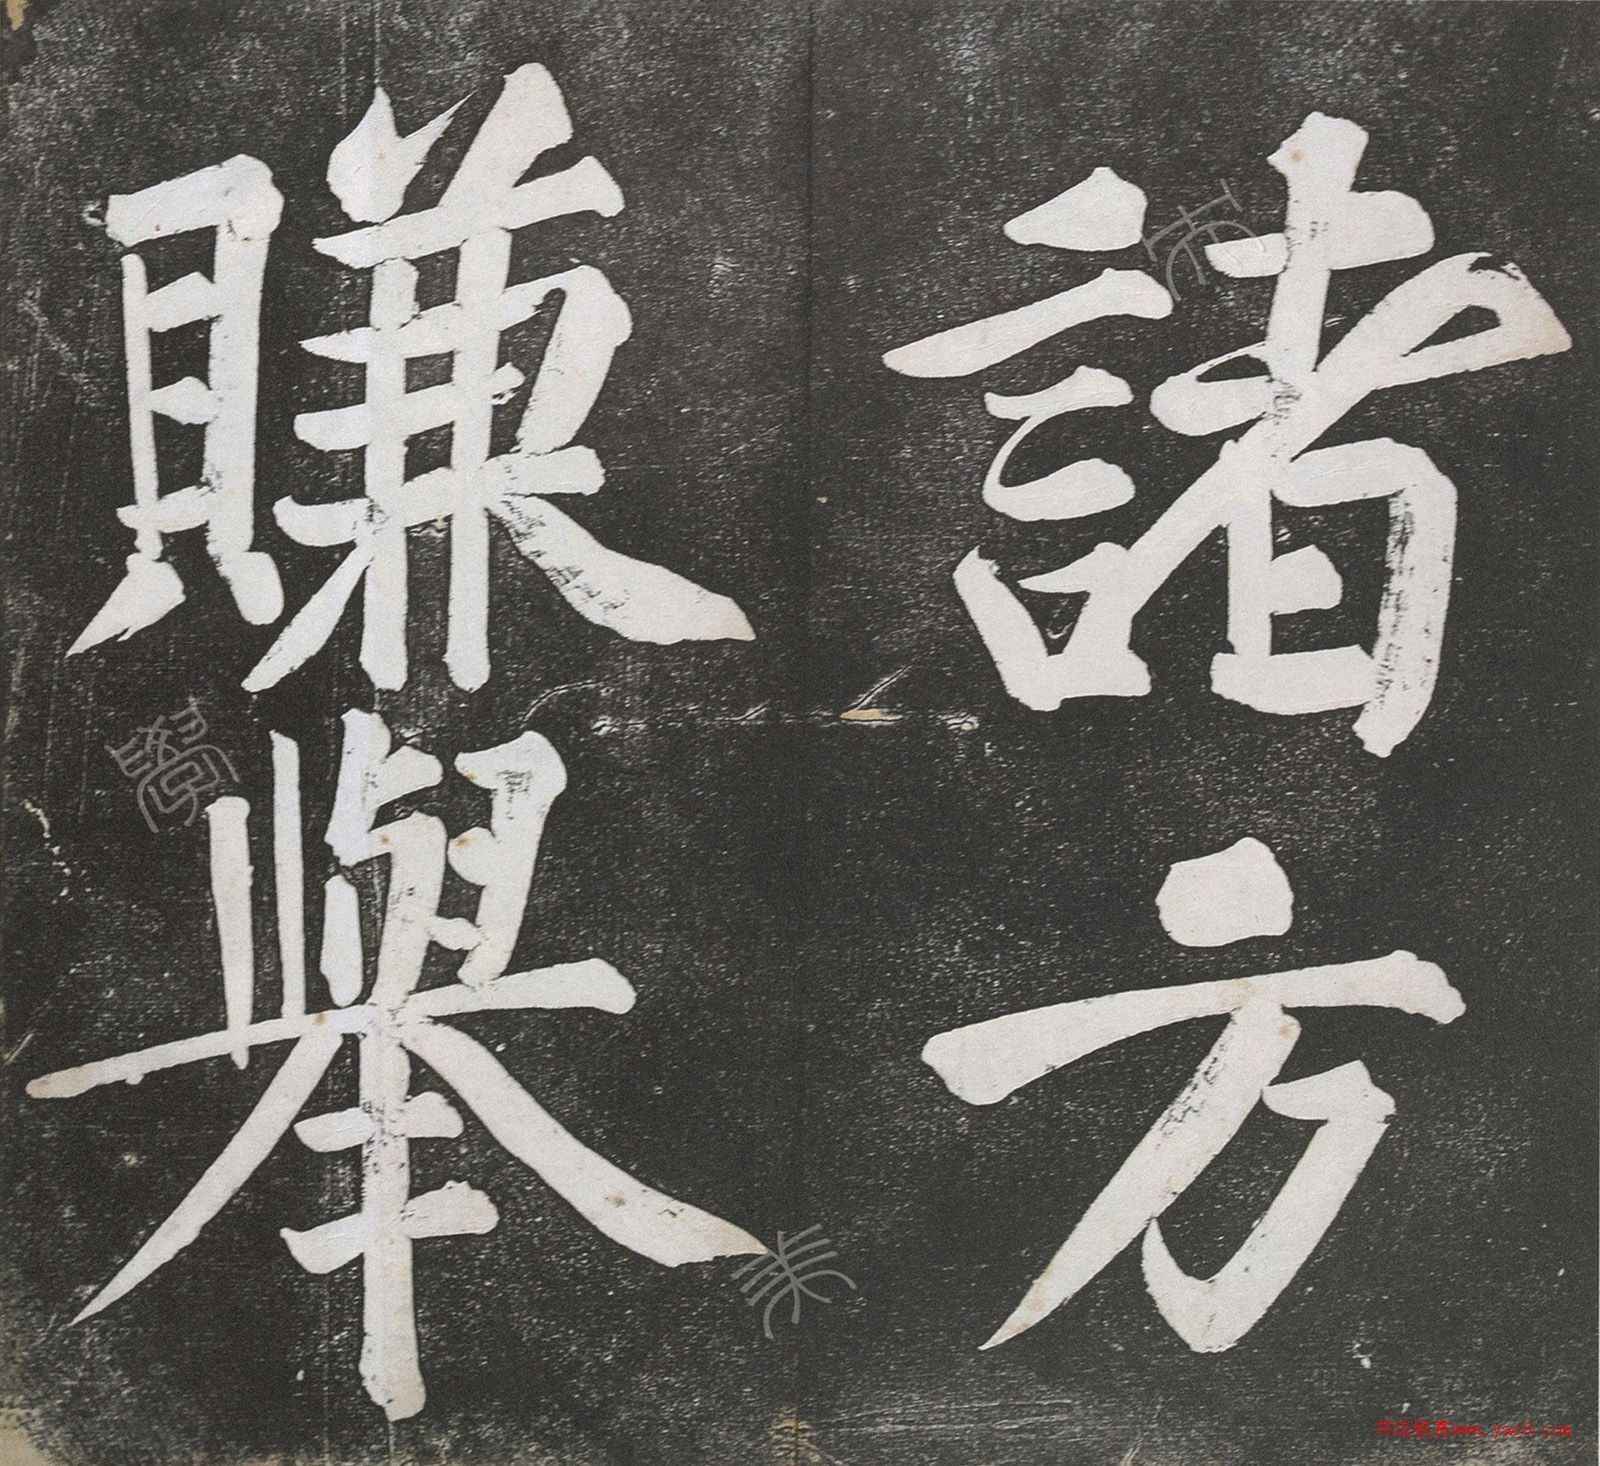 諸方
賺舉
书法欣赏www.yac8.com